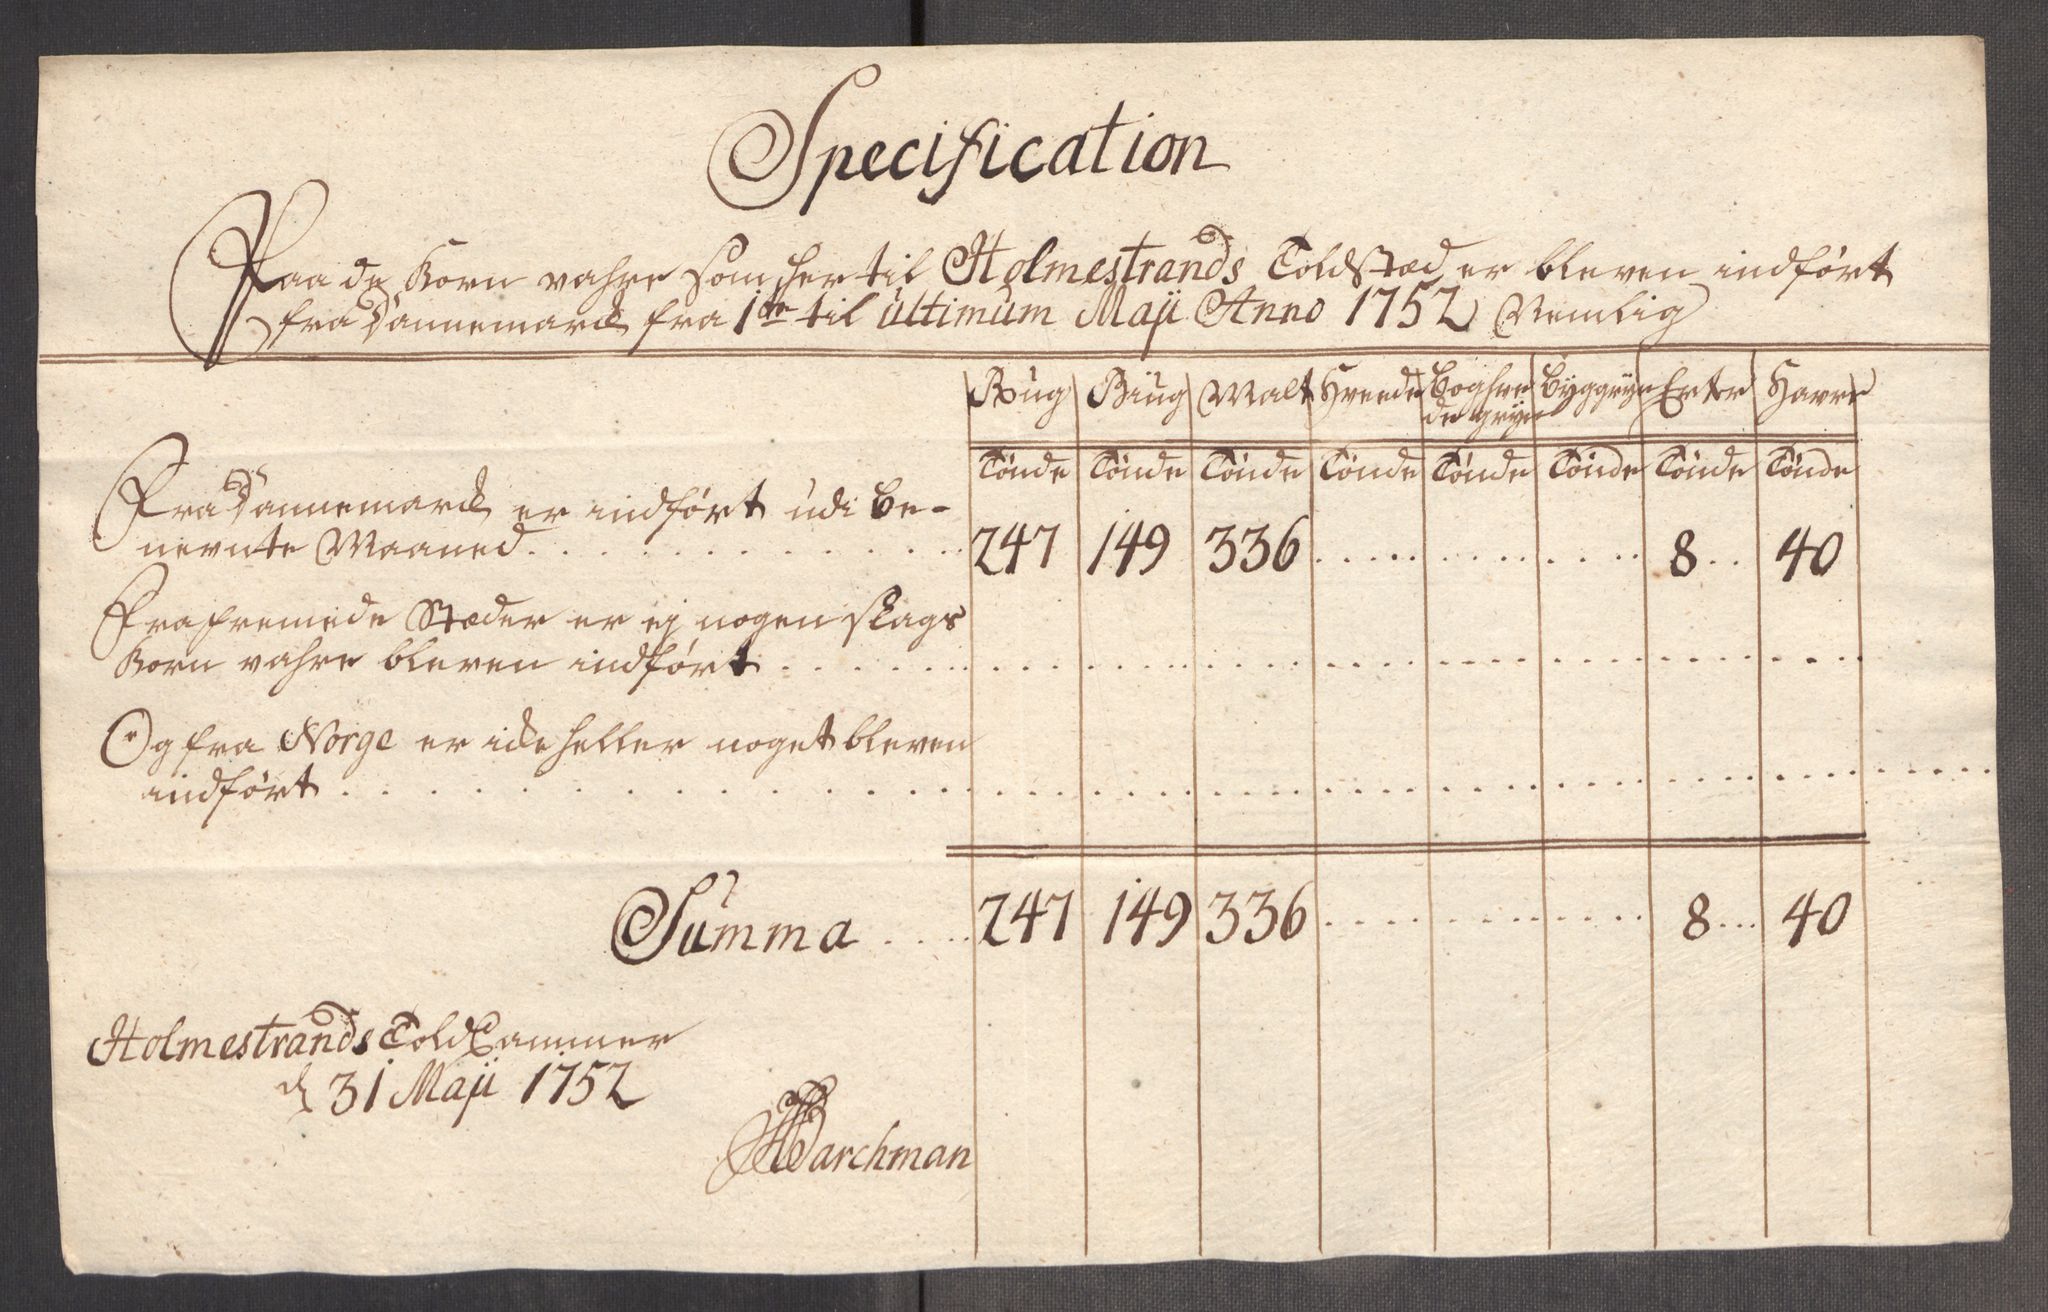 Specification
Paa de Korn vahre som her til Holmestrands Toldstæd er bleven indført
fra Dannemarck fra 1te til ultimum Maji Anno 1752 Nemlig
Rug Biug Malt Hvede Boghve Byggryn Erter Havre
de gryn
Tönde Tönde Tönde Tönde Tönde Tönde Tönde Tönde
Fra Dannemarck er indført udi be-
nevnte Maaned . . . . . . . . 247 149 336 . . . . . . . . . . . . 8 . . 40
Fra fremede Stæder er ej nogen slags
Korn vahre bleven indført . . . . . . . . . . . . . . . . . . . .
Og fra Norge er icke heller noget bleven
indført . . . . . . . . . . . . . . . . . . . . . . . .
Summa . . . . 247 149 336 . . . . . . . . . . . . 8 . . . 40
Holmestrands Told Cammer
d 31 Maji 1752
Barchman